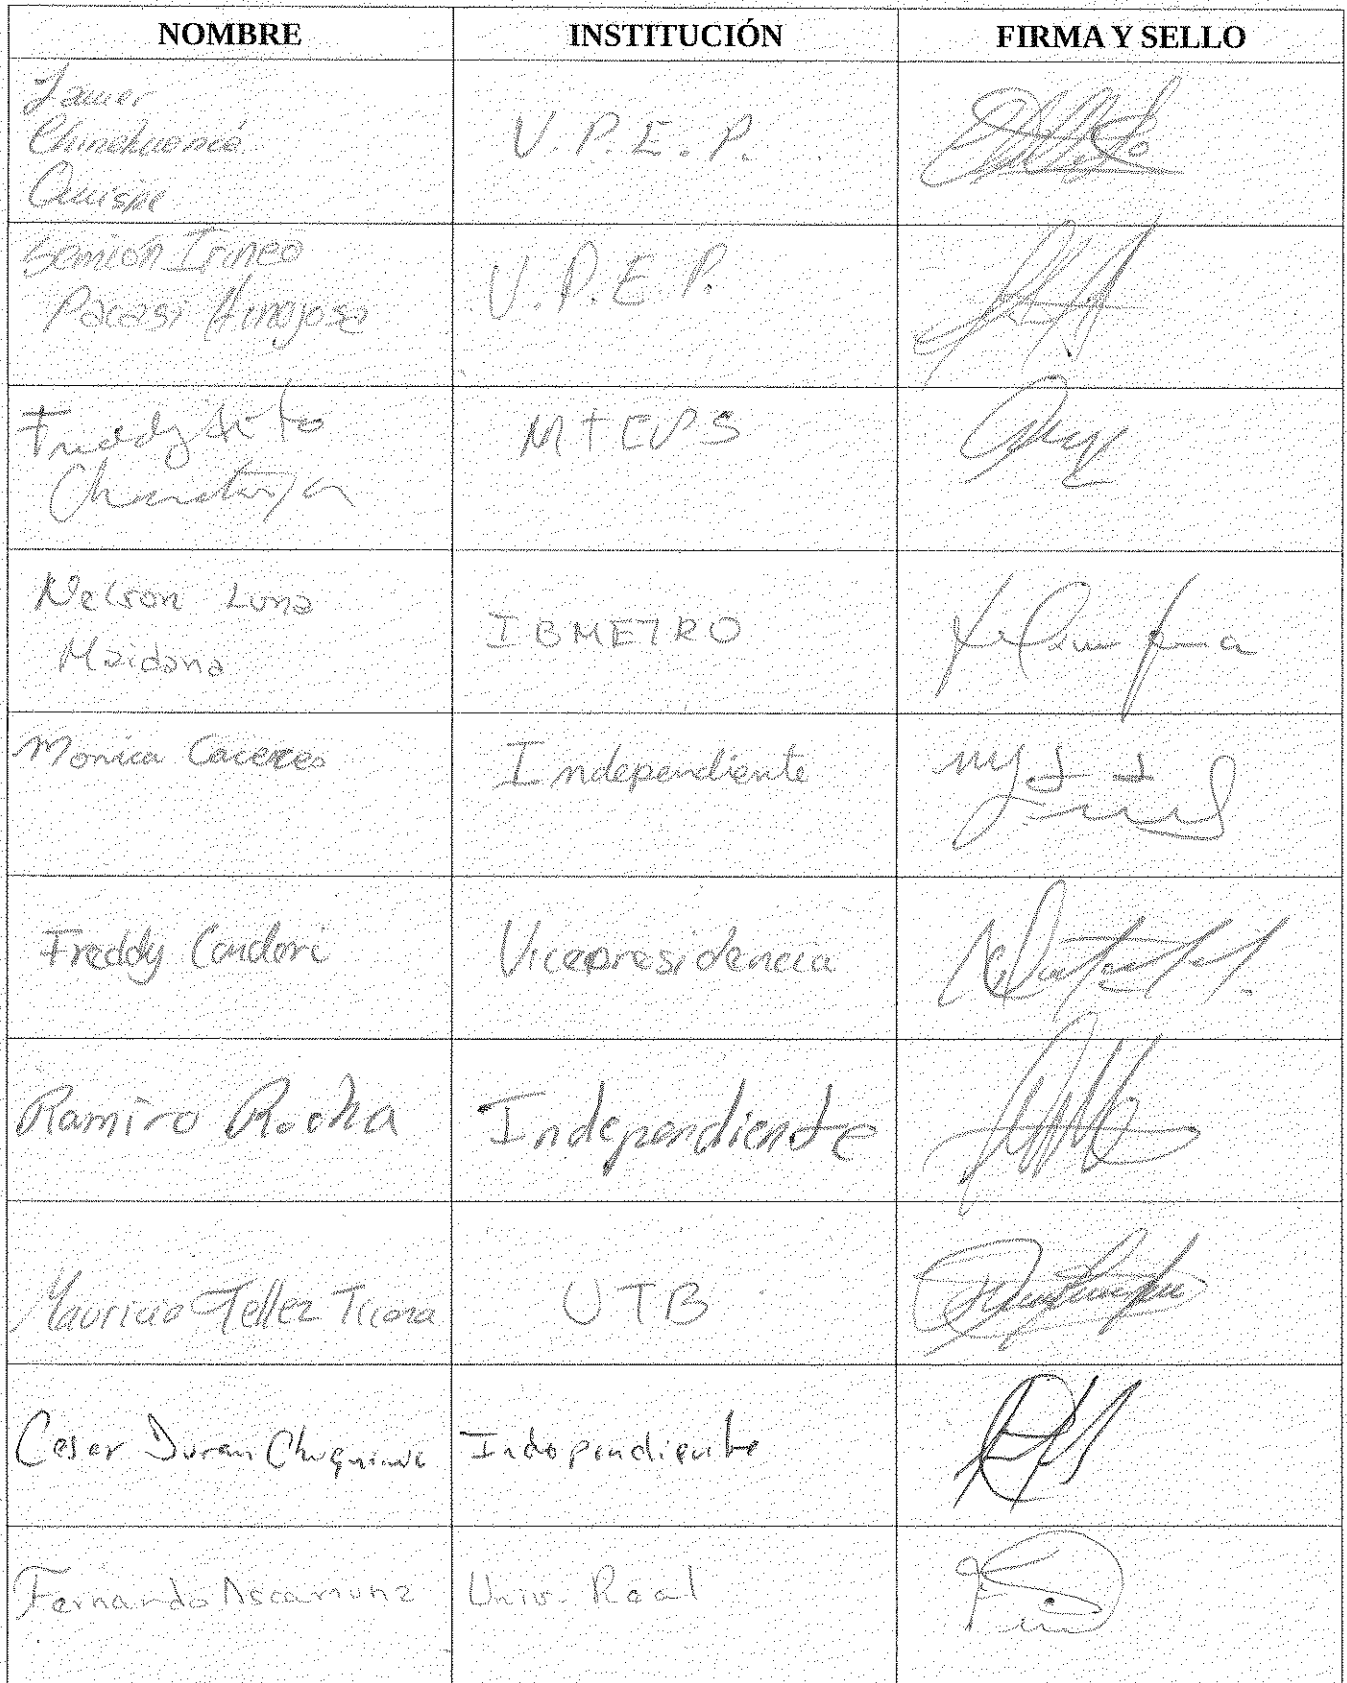 NOMBRE INSTITUCIÓN FIRMA Y SELLO
Javier
Chinchuenca
Quispe
U.P.E.P.
Semión Irineo
Pacasi Hinojosa
U.P.E.P.
Freddy
MTEPS
Nelson Luna
Maidana
IBMETRO
Monica Caceres
Independiente
Freddy Condori
Vicepresidencia
Ramiro Rocha
Independiente
Mauricio Tellez Ticona
UTB
Cesar Duran
Independiente
Fernando Ascarrunz
Univ. Real